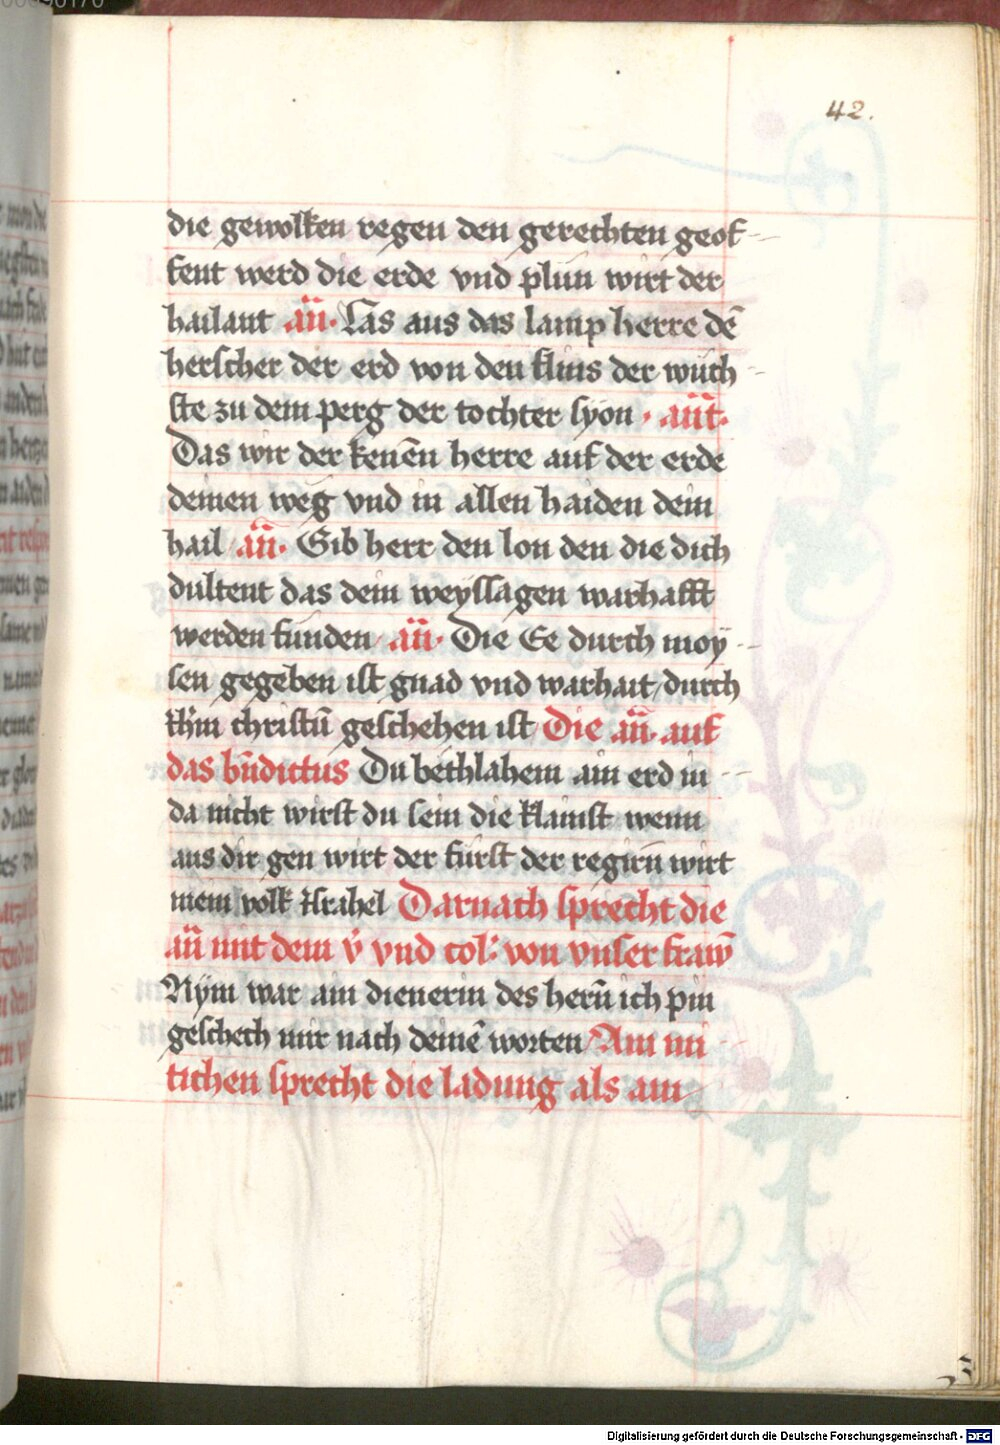 42.
die gewolken regen den gerechten geof-
fent werd die erde vnd plün wirt der
hailant añ. Las aus das lamp herre dē
herscher der erd von den flins der wüch-
ste zu dem perg der tochter syon. añt.
Das wir der kenēn herre auf der erde
deinen weg vnd in allen haiden dein
hail añ. Gib herr den lon den die dich
dultent das dein weyssagen warhafft
werden funden añ. Die Ee durch moy-
sen gegeben ist gnad vnd warhait durch
ihm christū geschehen ist Die añ. auf
das bn̄dictus Du bethlahem ain erd iu-
da nicht wirst du sein die klainst wenn
aus dir gen wirt der fürst der regirn̄ wirt
mein volk Israhel Darnach sprecht die
añ mit dem v̓ vnd col: von vnser fraw̄
Nym war ain dienerin des herñ ich pin
geschech mir nach deinē worten Am mi
tichen sprecht die ladung als am
Digitalisierung gefördert durch die Deutsche Forschungsgemeinschaft - DFG